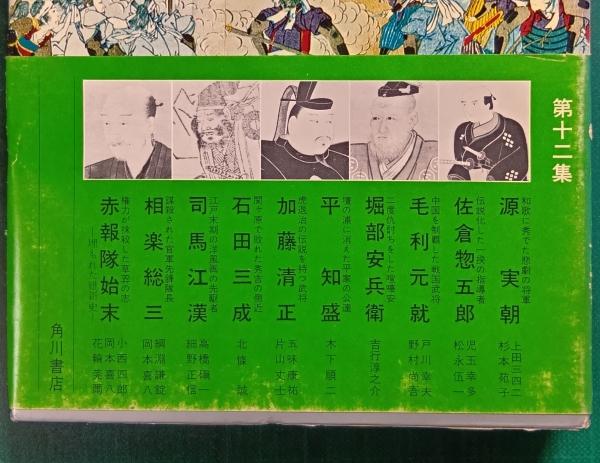 第十二集
和歌に秀でた悲劇の将軍
源 実朝
上田三四二
杉本苑子
伝説化した一揆の指導者
佐倉惣五郎
児玉幸多
松永伍一
中国を制覇した戦国武将
毛利元就
戸川幸夫
野村尚吾
二度仇討ちをした喧嘩安
堀部安兵衛
吉行淳之介
壇の浦に消えた平家の公達
平 知盛
木下順二
虎退治の伝説を持つ武将
加藤清正
五味康祐
片山丈士
関ヶ原で敗れた秀吉の側近
石田三成
北條 誠
江戸末期の洋風画の先駆者
司馬江漢
高橋磌一
細野正信
謀殺された官軍先鋒隊長
相楽総三
綱淵謙錠
岡本喜八
権力が抹殺した草莽の志
赤報隊始末
―埋もれた維新史―
小西四郎
岡本喜八
花輪莞爾
角川書店